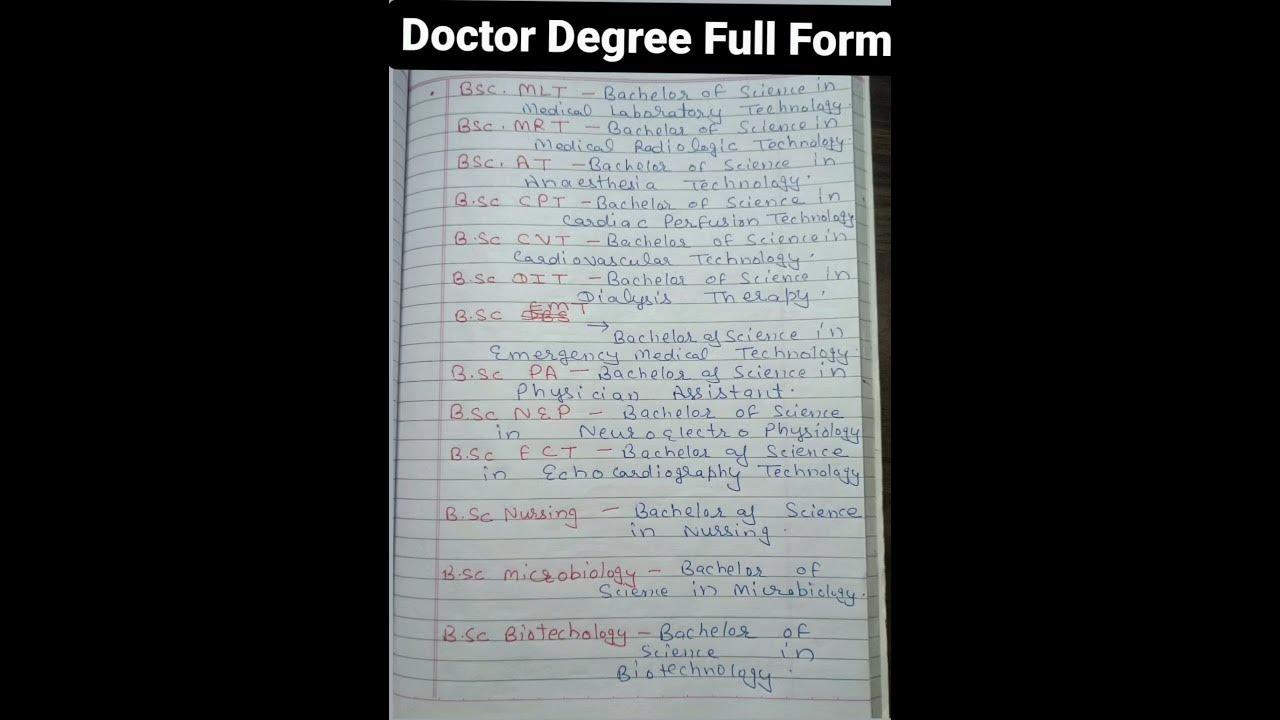 Doctor Degree Full Form
BSC. MLT - Bachelor of Science in
Medical Laboratory Technology.
BSc. MRT - Bachelor of Science in
Medical Radiologic Technology.
BSC. AT - Bachelor of Science in
Anaesthesia Technology.
B.Sc CPT - Bachelor of Science in
Cardiac Perfusion Technology
B.Sc CVT - Bachelor of Science in
Cardiovascular Technology.
B.Sc DIT - Bachelor of Science in
Dialysis Therapy.
B.Sc EMT
→ Bachelor of Science in
Emergency Medical Technology.
B.Sc PA - Bachelor of Science in
Physician Assistant.
B.Sc NEP - Bachelor of Science
in Neuroelectro Physiology
B.Sc ECT - Bachelor of Science
in Echocardiography Technology
B.Sc Nursing - Bachelor of Science
in Nursing.
B.Sc microbiology - Bachelor of
Science in Microbiology.
B.Sc Biotechology - Bachelor of
Science in
Biotechnology.